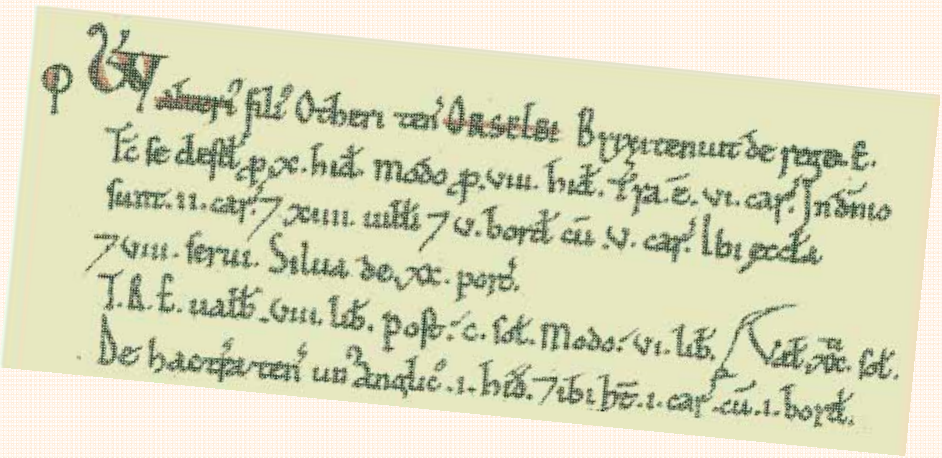 Walterı' fili' Otheri ten' ORSELEI Brixi tenuit de rege. E.
Tc̄ se defđ p. x. hiđ. modo p. viii. hiđ. Tr̄a. ē. vi. car'. In dn̄io
sunt. ii. car'. 7 xiiii. uiƚƚi 7 v. borđ cū. v. car'. Ibi ęccƚa
7 viii. serui. Silua de. xx. porc'.
T. R. E. uaƚƀ. viii. liƀ. post'. c. soƚ. Modo'. vi. liƀ. Vaƚ. xx. soƚ.
De hac tr̄a ten' un' anglic'. i. hiđ. 7 ibi hт̄. i. car'. cū. i. borđ.